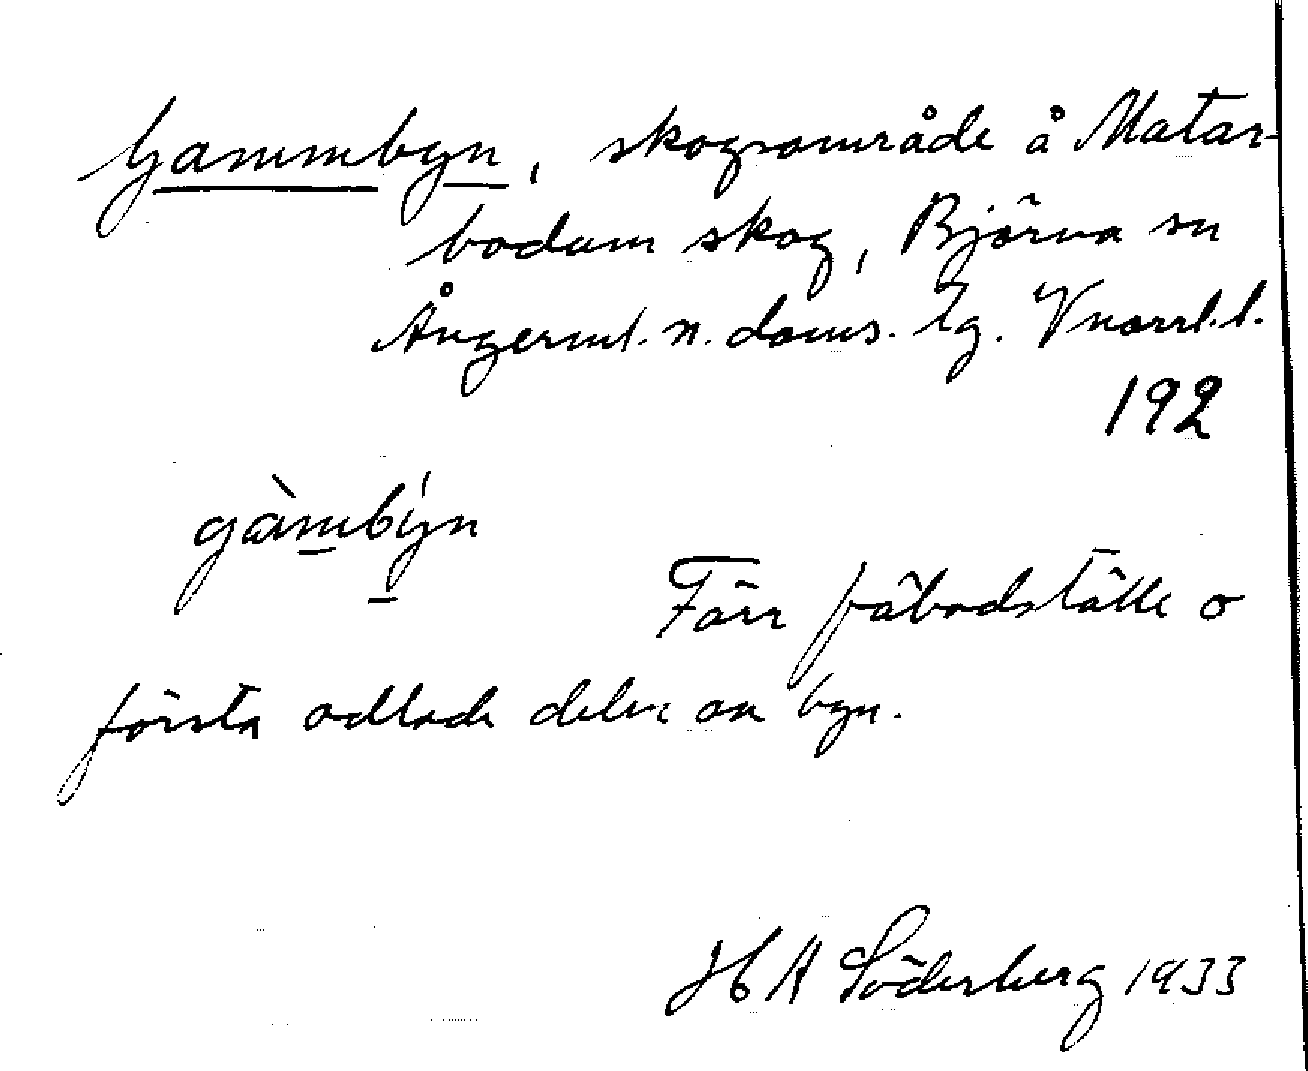 Gammbyn, skogsområde å Matar-
bodum skog, Björna sn
Ångerml. n. doms. tg. Vnorrl. l.
192
gàmbýn
Förr fäbodställe o
första odlade delen av byn.
H A Söderberg 1933